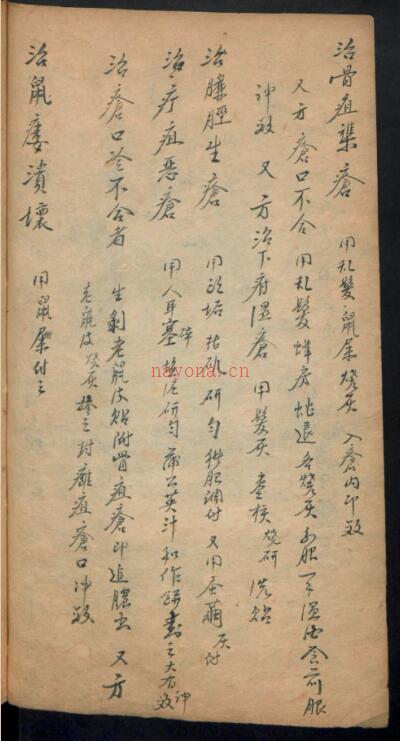 治骨疽集瘡 用乱髮鼠屎燒灰 入瘡内即效
又方瘡口不合 用乱髮蜂房蛇退各燒灰 溫酒食前服
神效 又方治下府濕瘡 用髮灰枣核燒研洗貼
治臁脛生瘡 用頭垢枯矾研匀猪胆調付 又用蚕繭灰付
治疔疽惡瘡 用人耳塞 研匀蒲公英汁和作餅 之大有神效
治瘡口冷不合者 生剥老鼠皮貼附骨疽瘡即追膿出 又方
老鼠皮燒灰摻之封癰疽瘡口神效
治鼠瘻潰壞 用鼠屎付之
nayona.cn